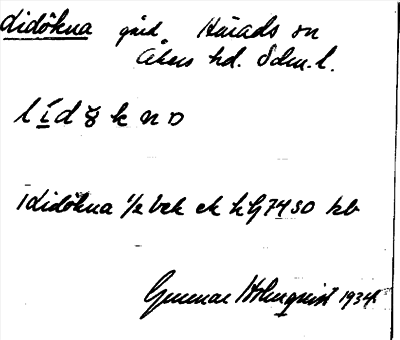 didökna gård Härads sn
Åkers hd. Sdm. l.
l í d ɣ k n
I didökna 1/2 bek ek hG 7450 kb
Gunnar Holmquist 1934.